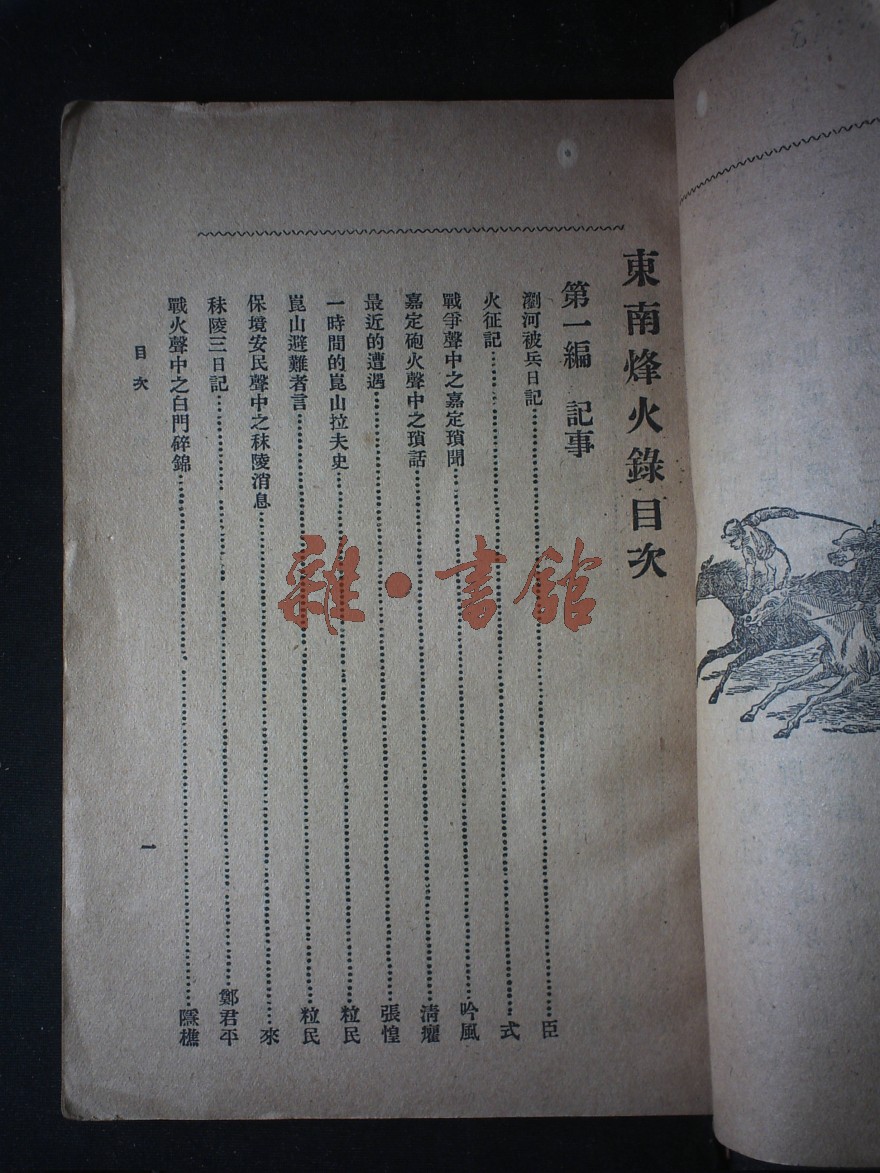 東南烽火錄目次
第一編 記事
瀏河被兵日記……臣
火征記……式
戰爭聲中之嘉定瑣聞……吟風
嘉定砲火聲中之瑣話……清癯
最近的遭遇……張惶
一時間的崑山拉夫史……粒民
崑山避難者言……粒民
保境安民聲中之秣陵消息……來
秣陵三日記……鄭君平
戰火聲中之白門碎錦……隱樵
目次
一
雜·書館